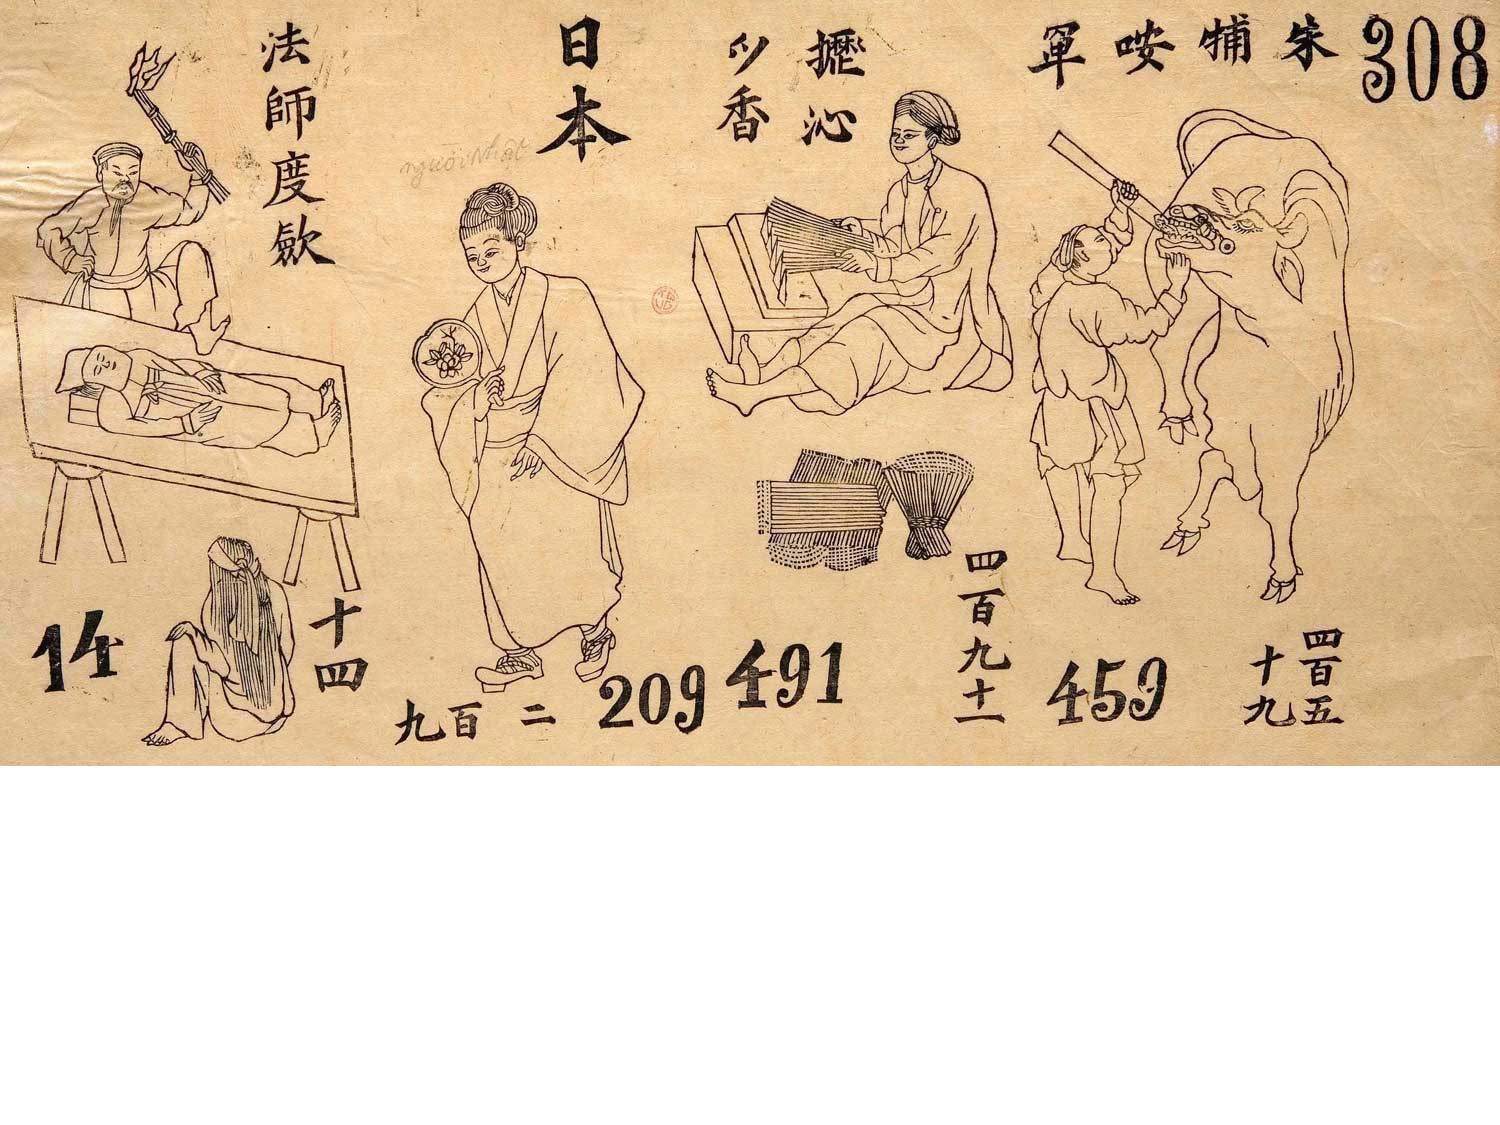 308
朱𤙭咹軍
攊沁
香
日本
người Nhật
法師度歛
459
四百五
十九
四百九十一
491
209
二百九
十四
14